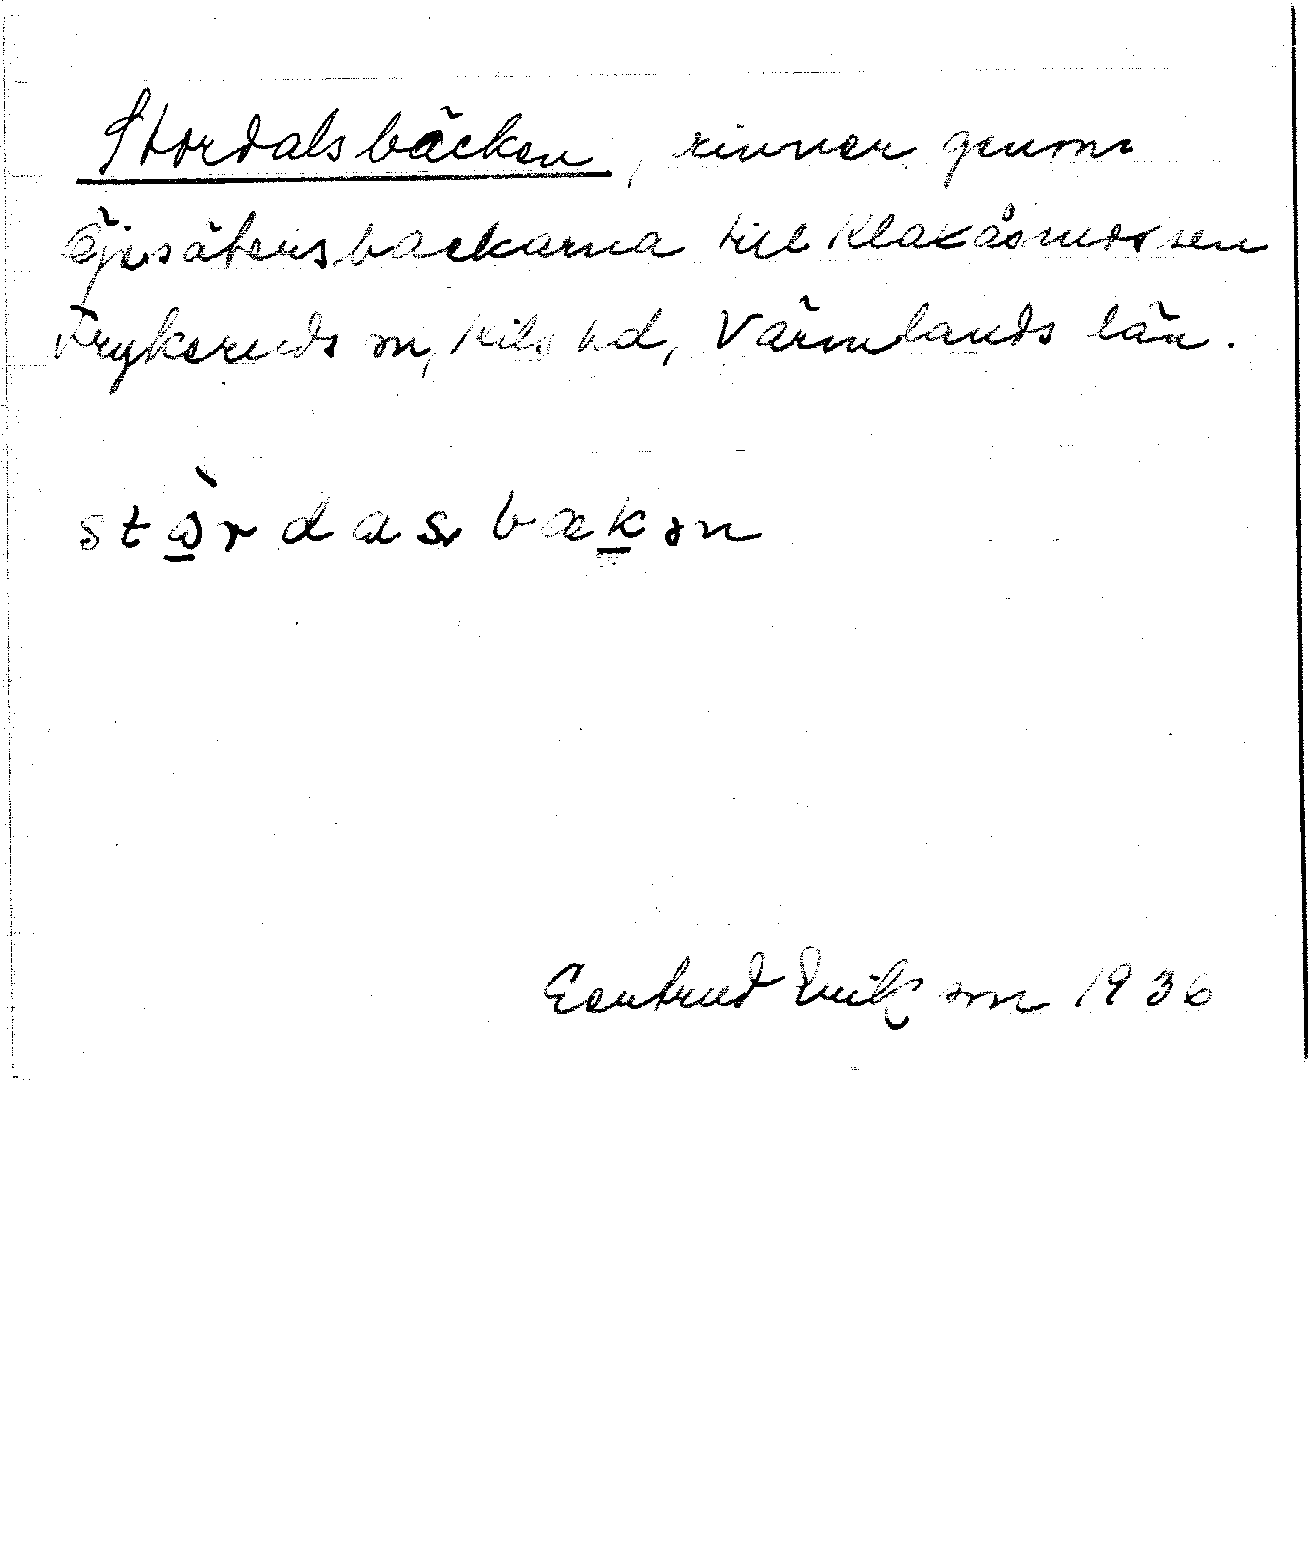 Stordalsbäcken, rinner genom
Öjesätersbackarna till Klakåsmossen
Frykeruds sn, Kils hd, Värmlands län.
stòrdasbækən
Gertrud Erikson 1936